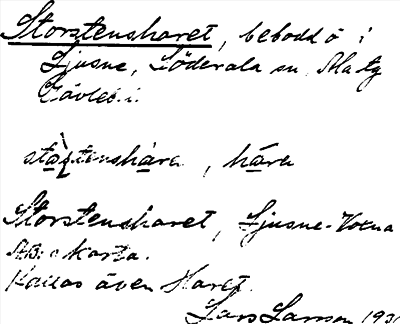 Storstensharet, bebodd ö i
Ljusne, Söderala sn, Ala tg
Gävleb. l.
stòrstenshàra, hàra
Storstensharet, Ljusne-Voxna
AB:s karta.
Kallas även Haret.
Lars Larsson 193